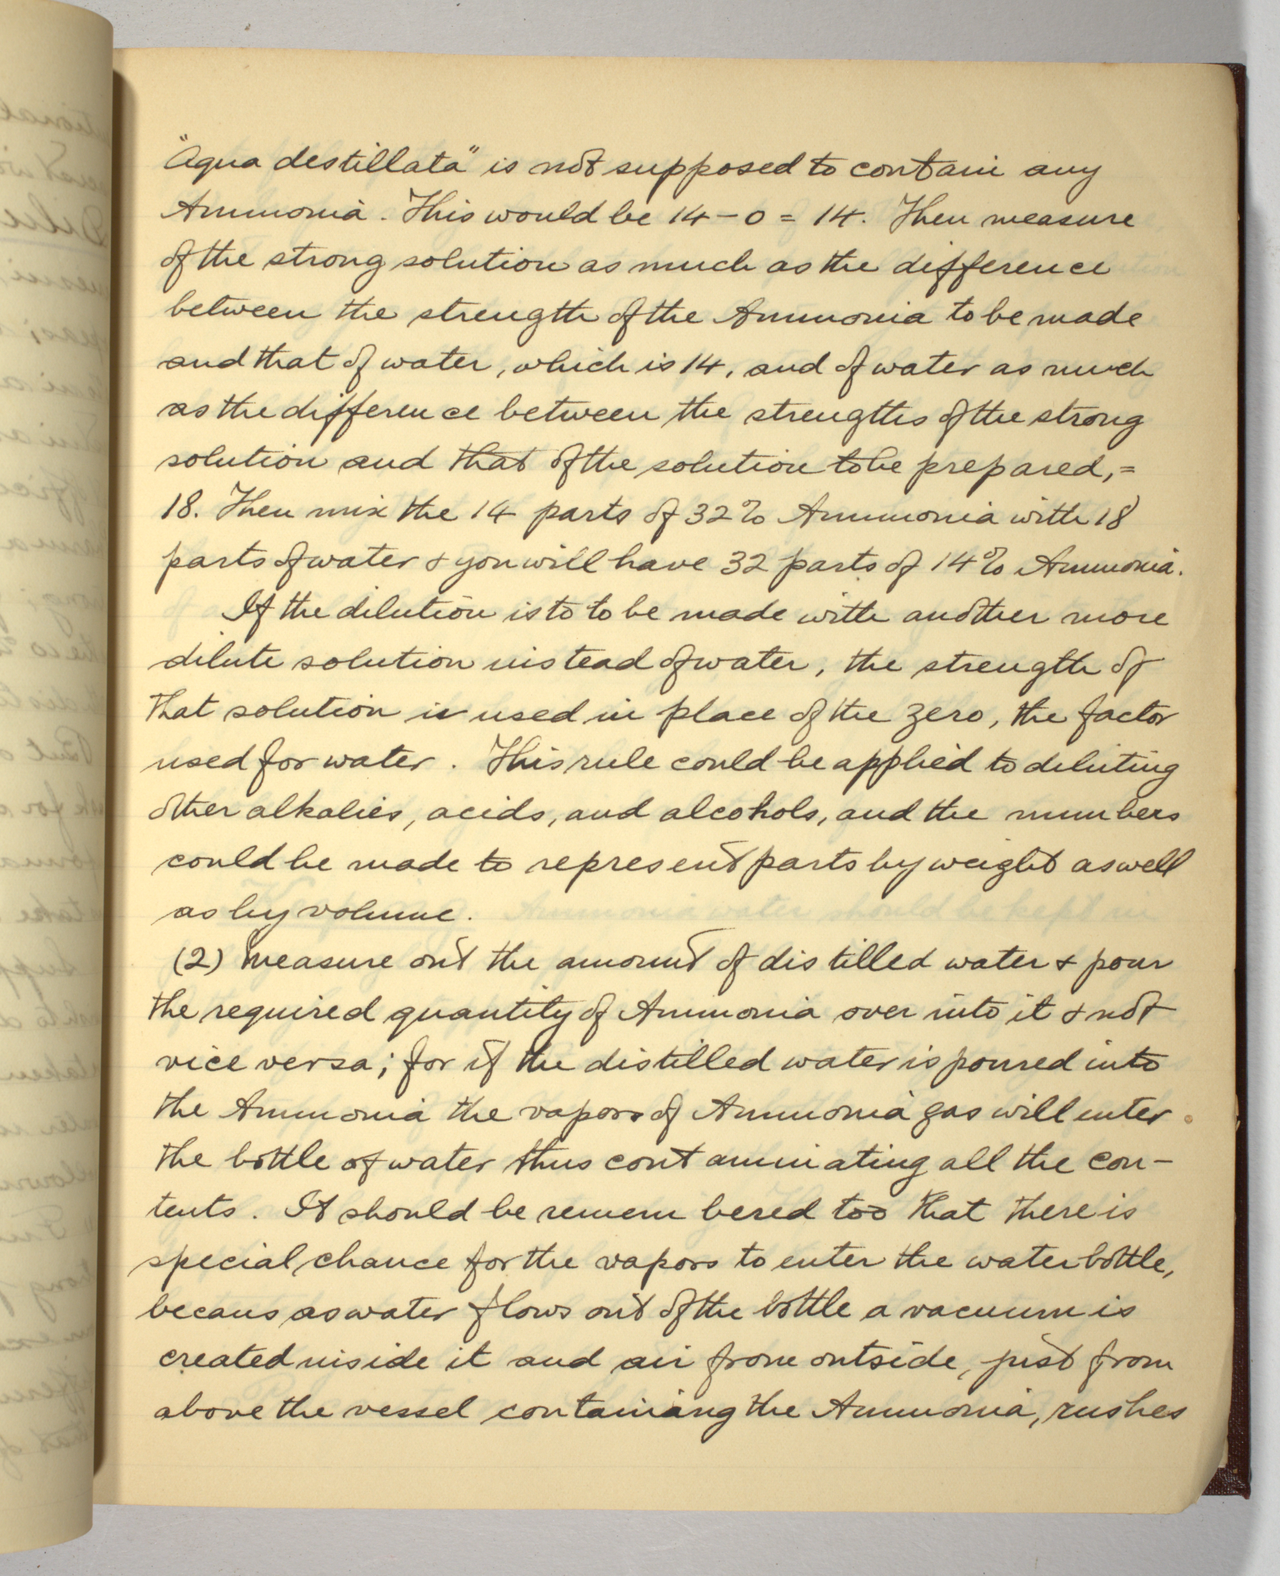 "Aqua destillata" is not supposed to contain any
Ammonia. This would be 14 - 0 = 14. Then measure
of the strong solution as much as the difference
between the strength of the Ammonia to be made
and that of water, which is 14, and of water as much
as the difference between the strengths of the strong
solution and that of the solution to be prepared, =
18. Then mix the 14 parts of 32% Ammonia with 18
parts of water & you will have 32 parts of 14% Ammonia.
If the dilution is to to be made with another more
dilute solution instead of water, the strength of
that solution is used in place of the zero, the factor
used for water. This rule could be applied to diluting
other alkalies, acids, and alcohols, and the numbers
could be made to represent parts by weight as well
as by volume.
(2) Measure out the amount of distilled water & pour
the required quantity of Ammonia over into it & not
vice versa; for if the distilled water is poured into
the Ammonia the vapors of Ammonia gas will enter
the bottle of water thus contaminating all the con-
tents. It should be remembered too that there is
special chance for the vapors to enter the water bottle,
becaus as water flows out of the bottle a vacuum is
created inside it and air from outside, just from
above the vessel containing the Ammonia, rushes